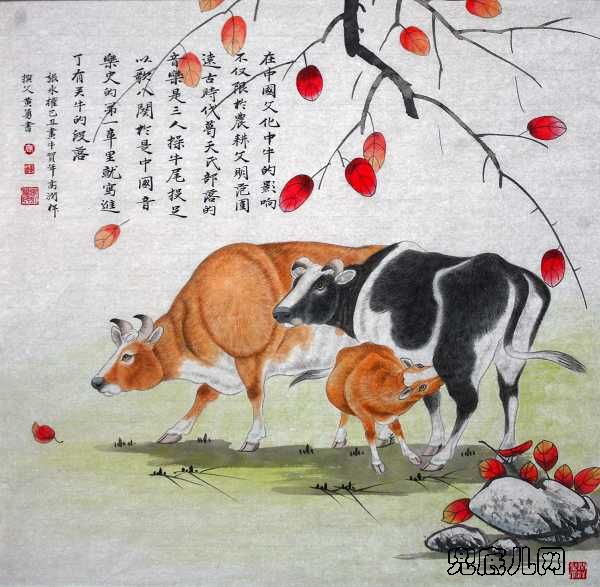 在中國文化中牛的影响
不仅限於農耕文明范围
遠古時代葛天氏部落的
音樂是三人操牛尾投足
以歌八闋於是中國音
樂史的第一章里就寫進
了有关牛的段落
張永權己丑畫牛賀年高潤祥
撰文黄勇書
兜底儿网